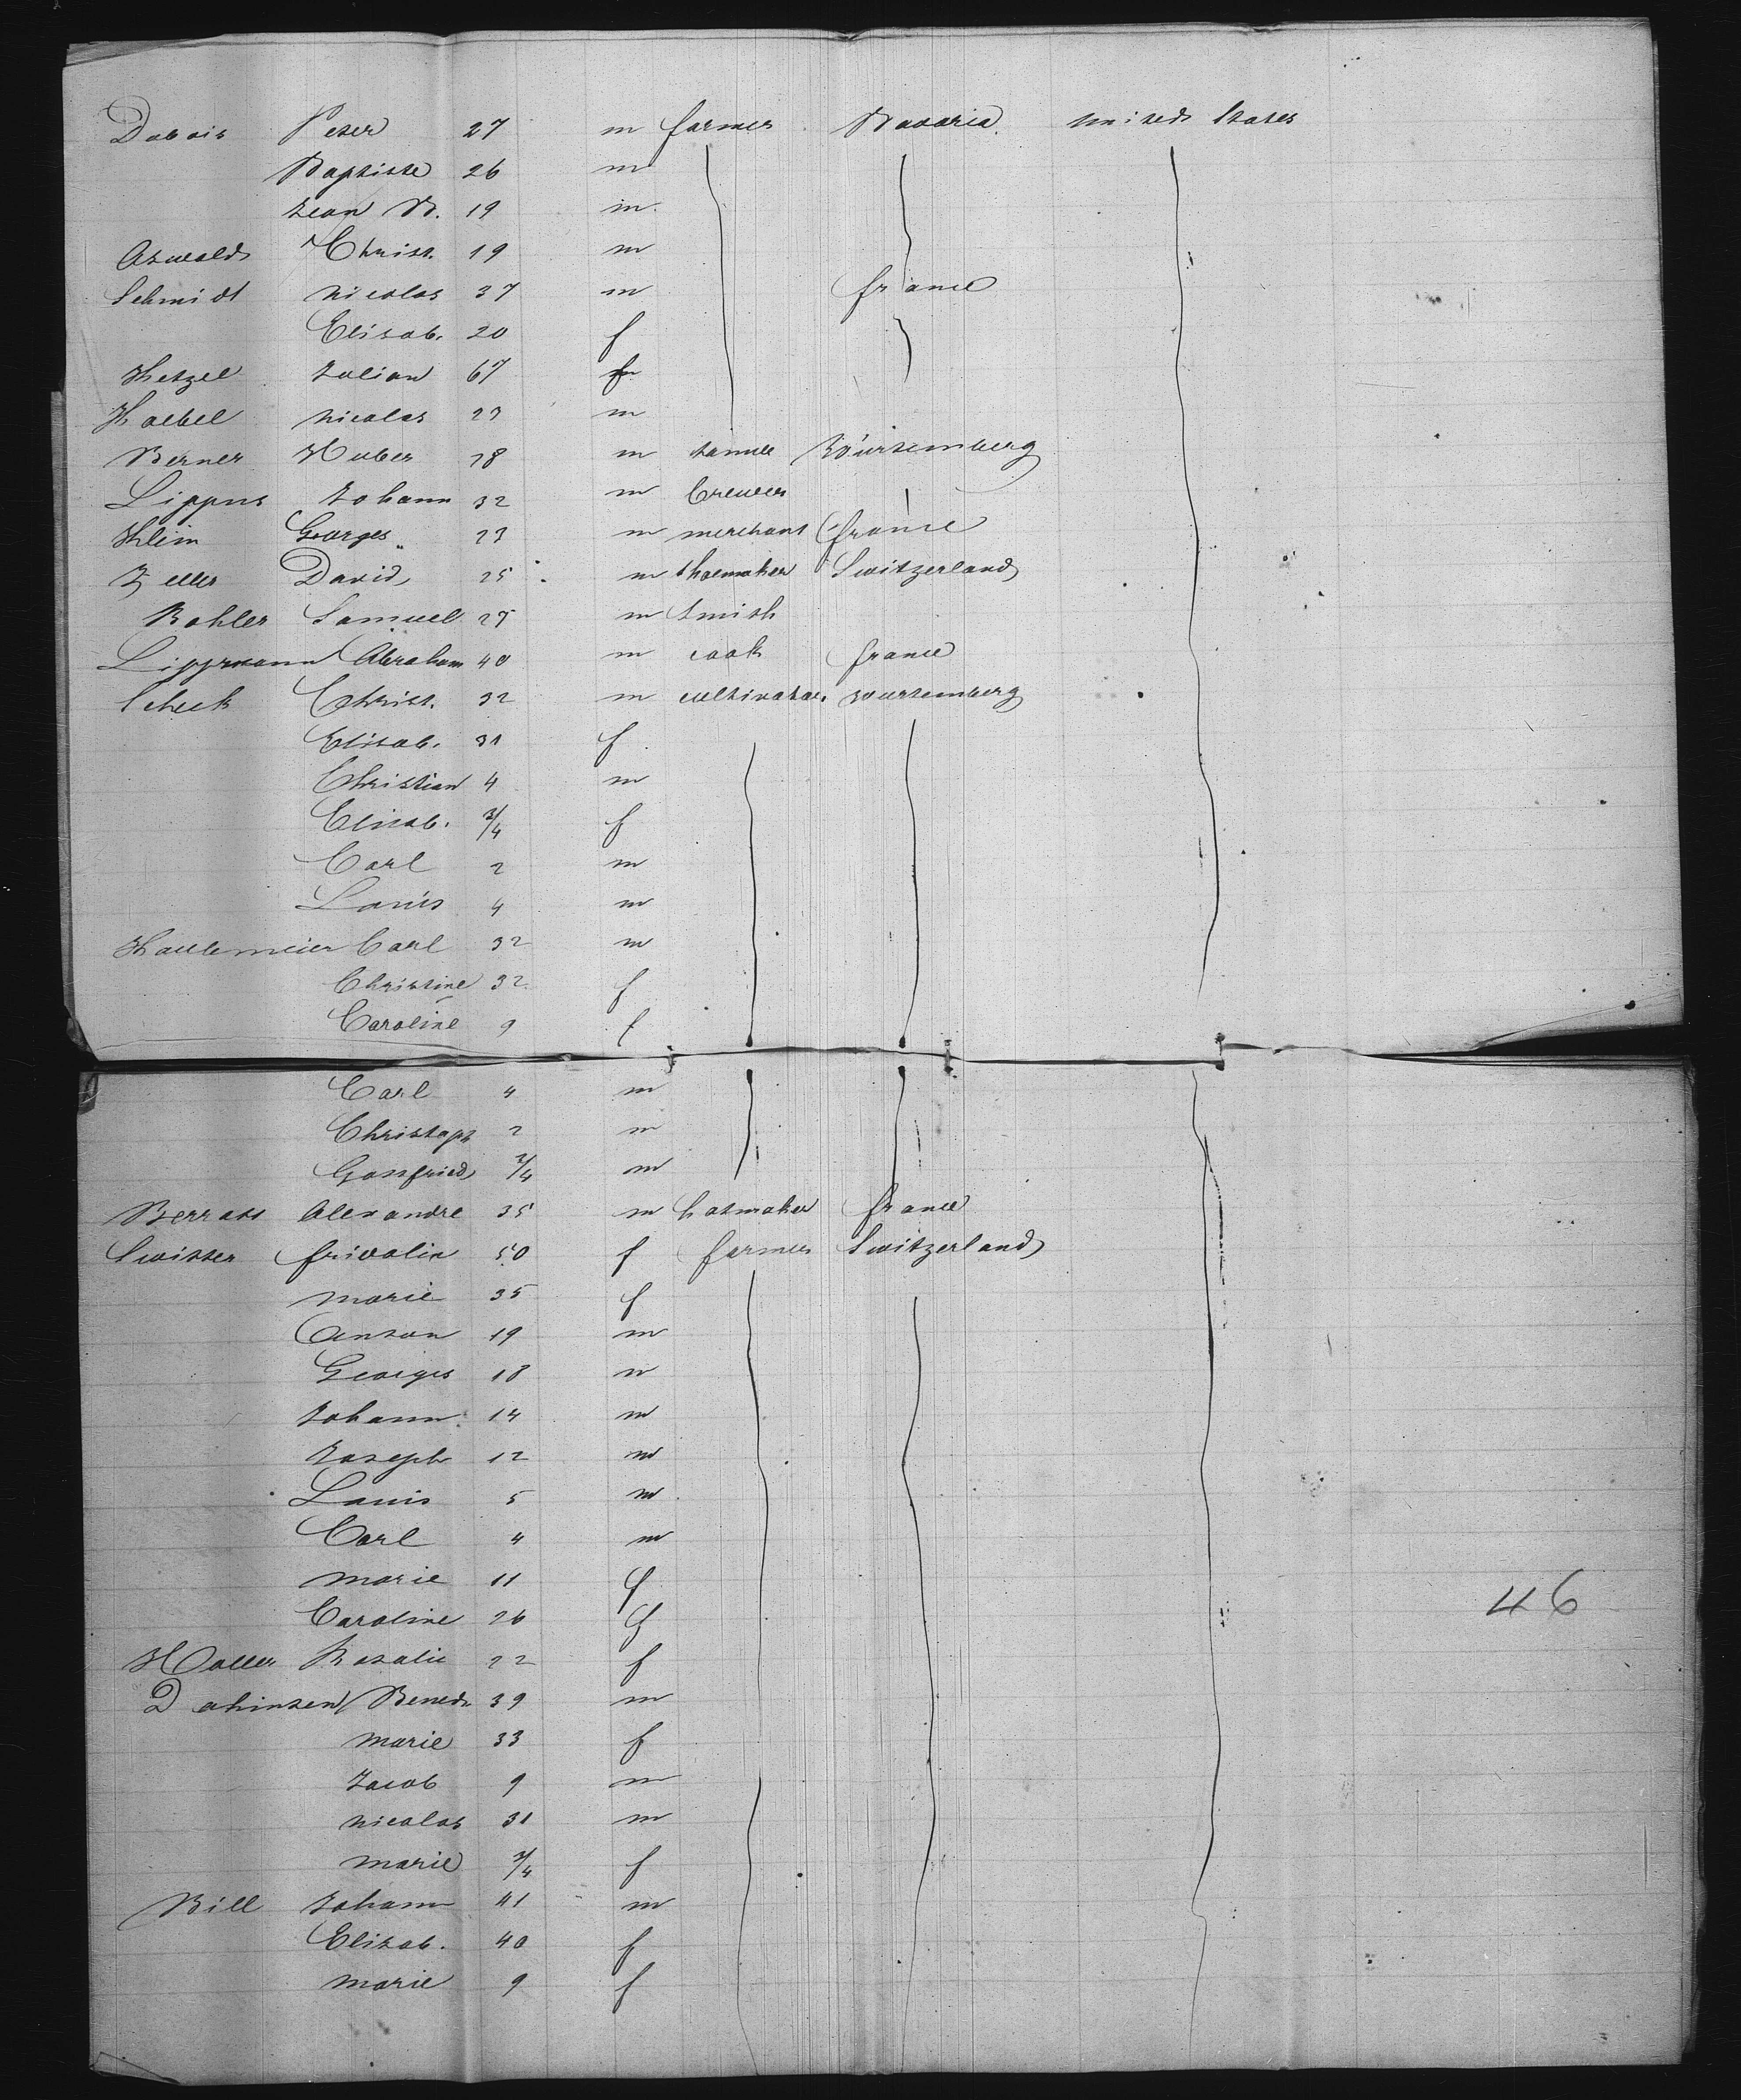 Dubois Peter 27 m farmer Bavaria. united States
Baptiste 26 m
Jean B. 19 m
Oswald Christ. 19 m
Schmidt nicolas 37 m france
Elisab. 20 f
Hetzel Julian 67
Haebel nicolas 23 m
Berner Huber 18 m tanner Würtemberg
Lippus Johann 32 m brewer
Klein Georges 23 m merchant france
Zeller David 25 m shoemaker Switzerland
Bohler Samuel 27 m smith
Lippmann Abraham 40 m cook france
Scheck Christ. 32 m cultivator wurtemberg
Elisab. 31 f
Christian 4 m
Elisab. 3/4 f
Carl 2 m
Louis 4 m
Carl 32 m
Christine 32 f
Caroline 9 f
Carl 4 m
Christoph 2 m
Gottfried 3/4 m
Alexandre 35 m hatmaker france
Switter frivolin 50 f farmer Switzerland
marie 35 f
Anton 19 m
Georges 18 m
Johann 14 m
Joseph 12 m
Louis 5 m
Carl 4 m
marie 11 f
46
Caroline 26 f
Haller Rosalie 22 f
Dahinten Bened. 39 m
marie 33 f
Jacob 9 m
nicolas 31 m
marie 3/4 f
Bill Johann 41 m
Elisab. 40 f
marie 9 f